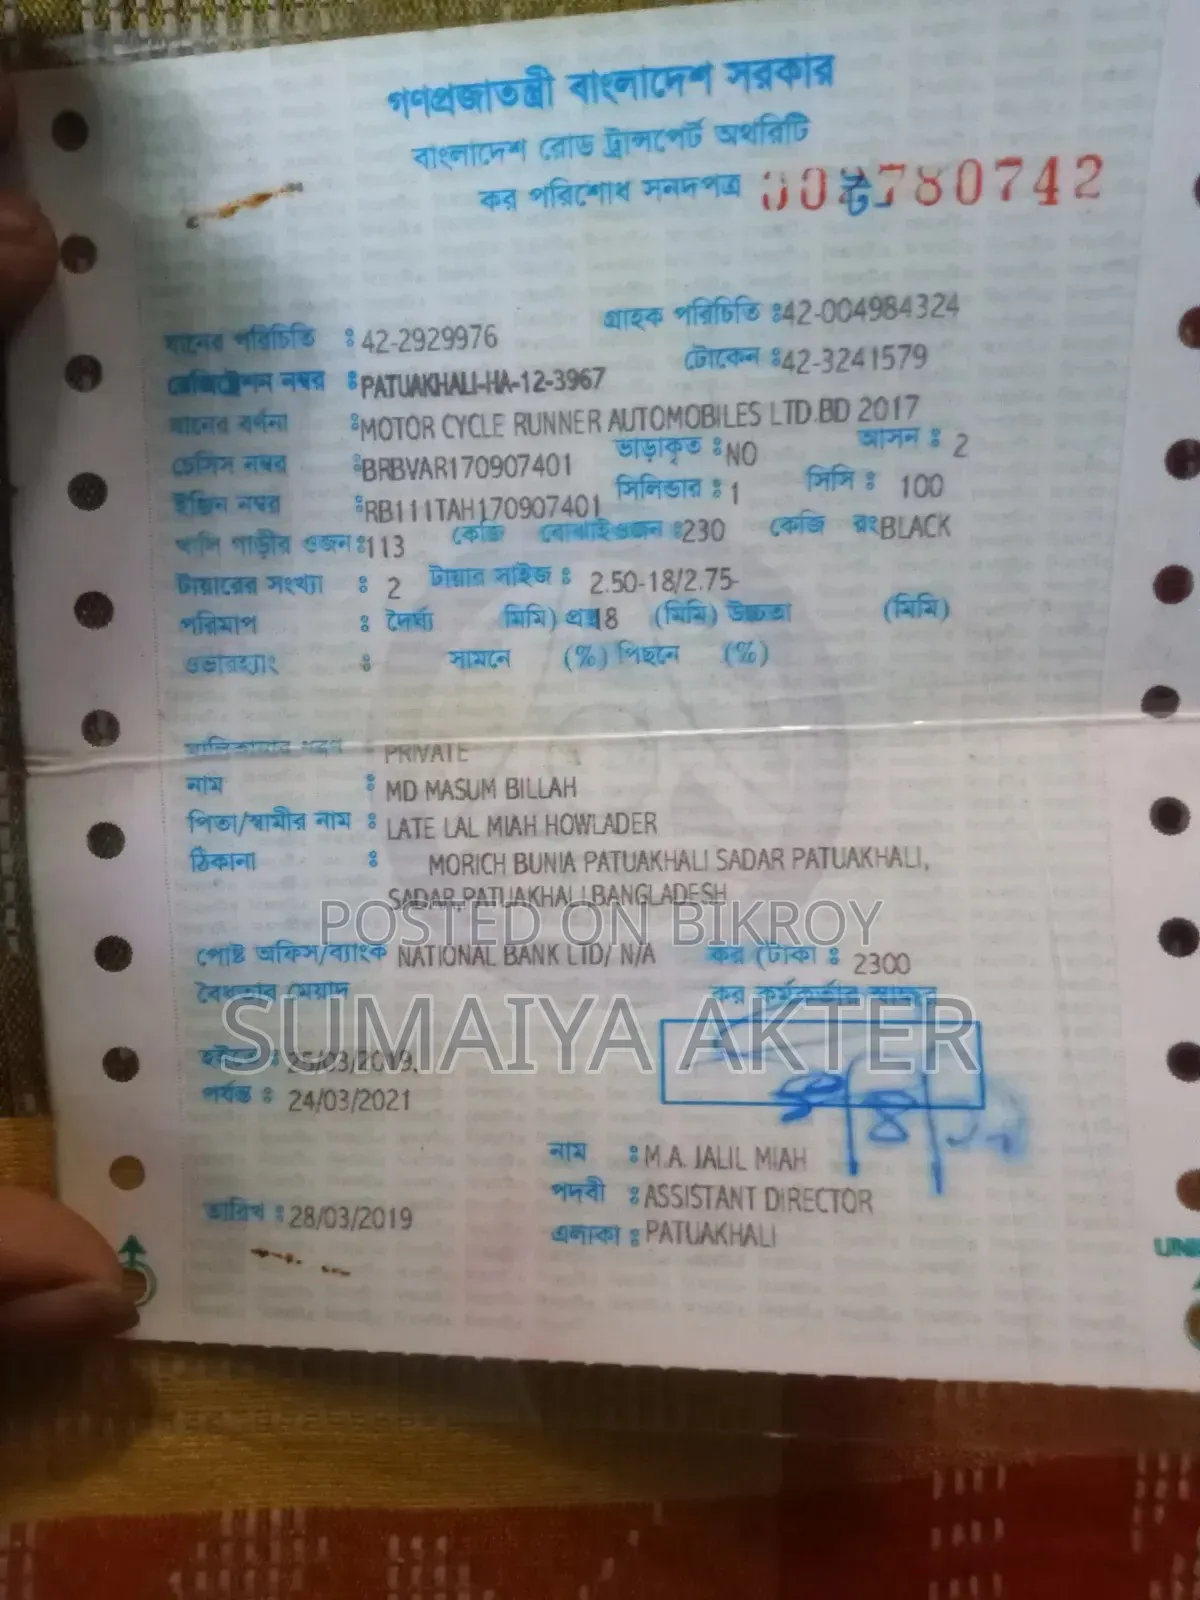 গণপ্রজাতন্ত্রী বাংলাদেশ সরকার
বাংলাদেশ রোড ট্রান্সপোর্ট অথরিটি
কর পরিশোধ সনদপত্র 780742
যানের পরিচিতি : 42-2929976 গ্রাহক পরিচিতি : 42-004984324
রেজিষ্ট্রেশন নম্বর : PATUAKHALI-HA-12-3967 টোকেন : 42-3241579
যানের বর্ণনা : MOTOR CYCLE RUNNER AUTOMOBILES LTD.BD 2017
চেসিস নম্বর : BRBVAR170907401 ভাড়াকৃত : NO আসন : 2
ইঞ্জিন নম্বর : RB111TAH170907401 সিলিন্ডার : 1 সিসি : 100
খালি গাড়ীর ওজন : 113 কেজি বোঝাই ওজন : 230 কেজি রং BLACK
টায়ারের সংখ্যা : 2 টায়ার সাইজ : 2.50-18/2.75-
পরিমাপ : দৈর্ঘ্য মিমি) 18 (মিমি) উচ্চতা (মিমি)
ওভারহ্যাং : সামনে (%) পিছনে (%)
মালিকানার ধরণ PRIVATE
নাম : MD MASUM BILLAH
পিতা/স্বামীর নাম : LATE LAL MIAH HOWLADER
ঠিকানা : MORICH BUNIA PATUAKHALI SADAR PATUAKHALI,
SADAR,PATUAKHALI,BANGLADESH
POSTED ON BIKROY
পোষ্ট অফিস/ব্যাংক NATIONAL BANK LTD/ N/A কর (টাকা : 2300
বৈধতার মেয়াদ কর কর্মকর্তার স্বাক্ষর
SUMAIYA AKTER
হইতে : 25/03/2019
পর্যন্ত : 24/03/2021
নাম : M.A. JALIL MIAH
পদবী : ASSISTANT DIRECTOR
তারিখ : 28/03/2019 এলাকা : PATUAKHALI